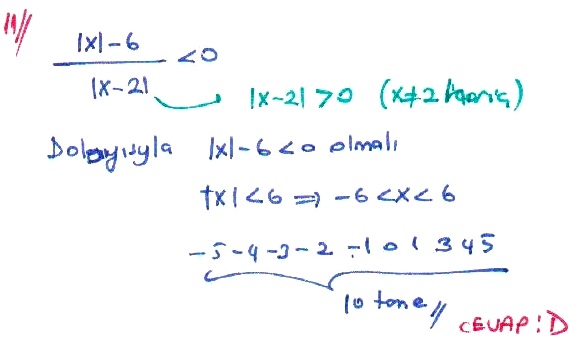 11//
|x|-6
|x-2| <0
|x-2| >0 (x≠2 hariç)
Dolayısıyla |x|-6<0 olmalı
|x|<6 ⇒ -6<x<6
-5 -4 -3 -2 -1 0 1 3 4 5
10 tane //
CEVAP: D